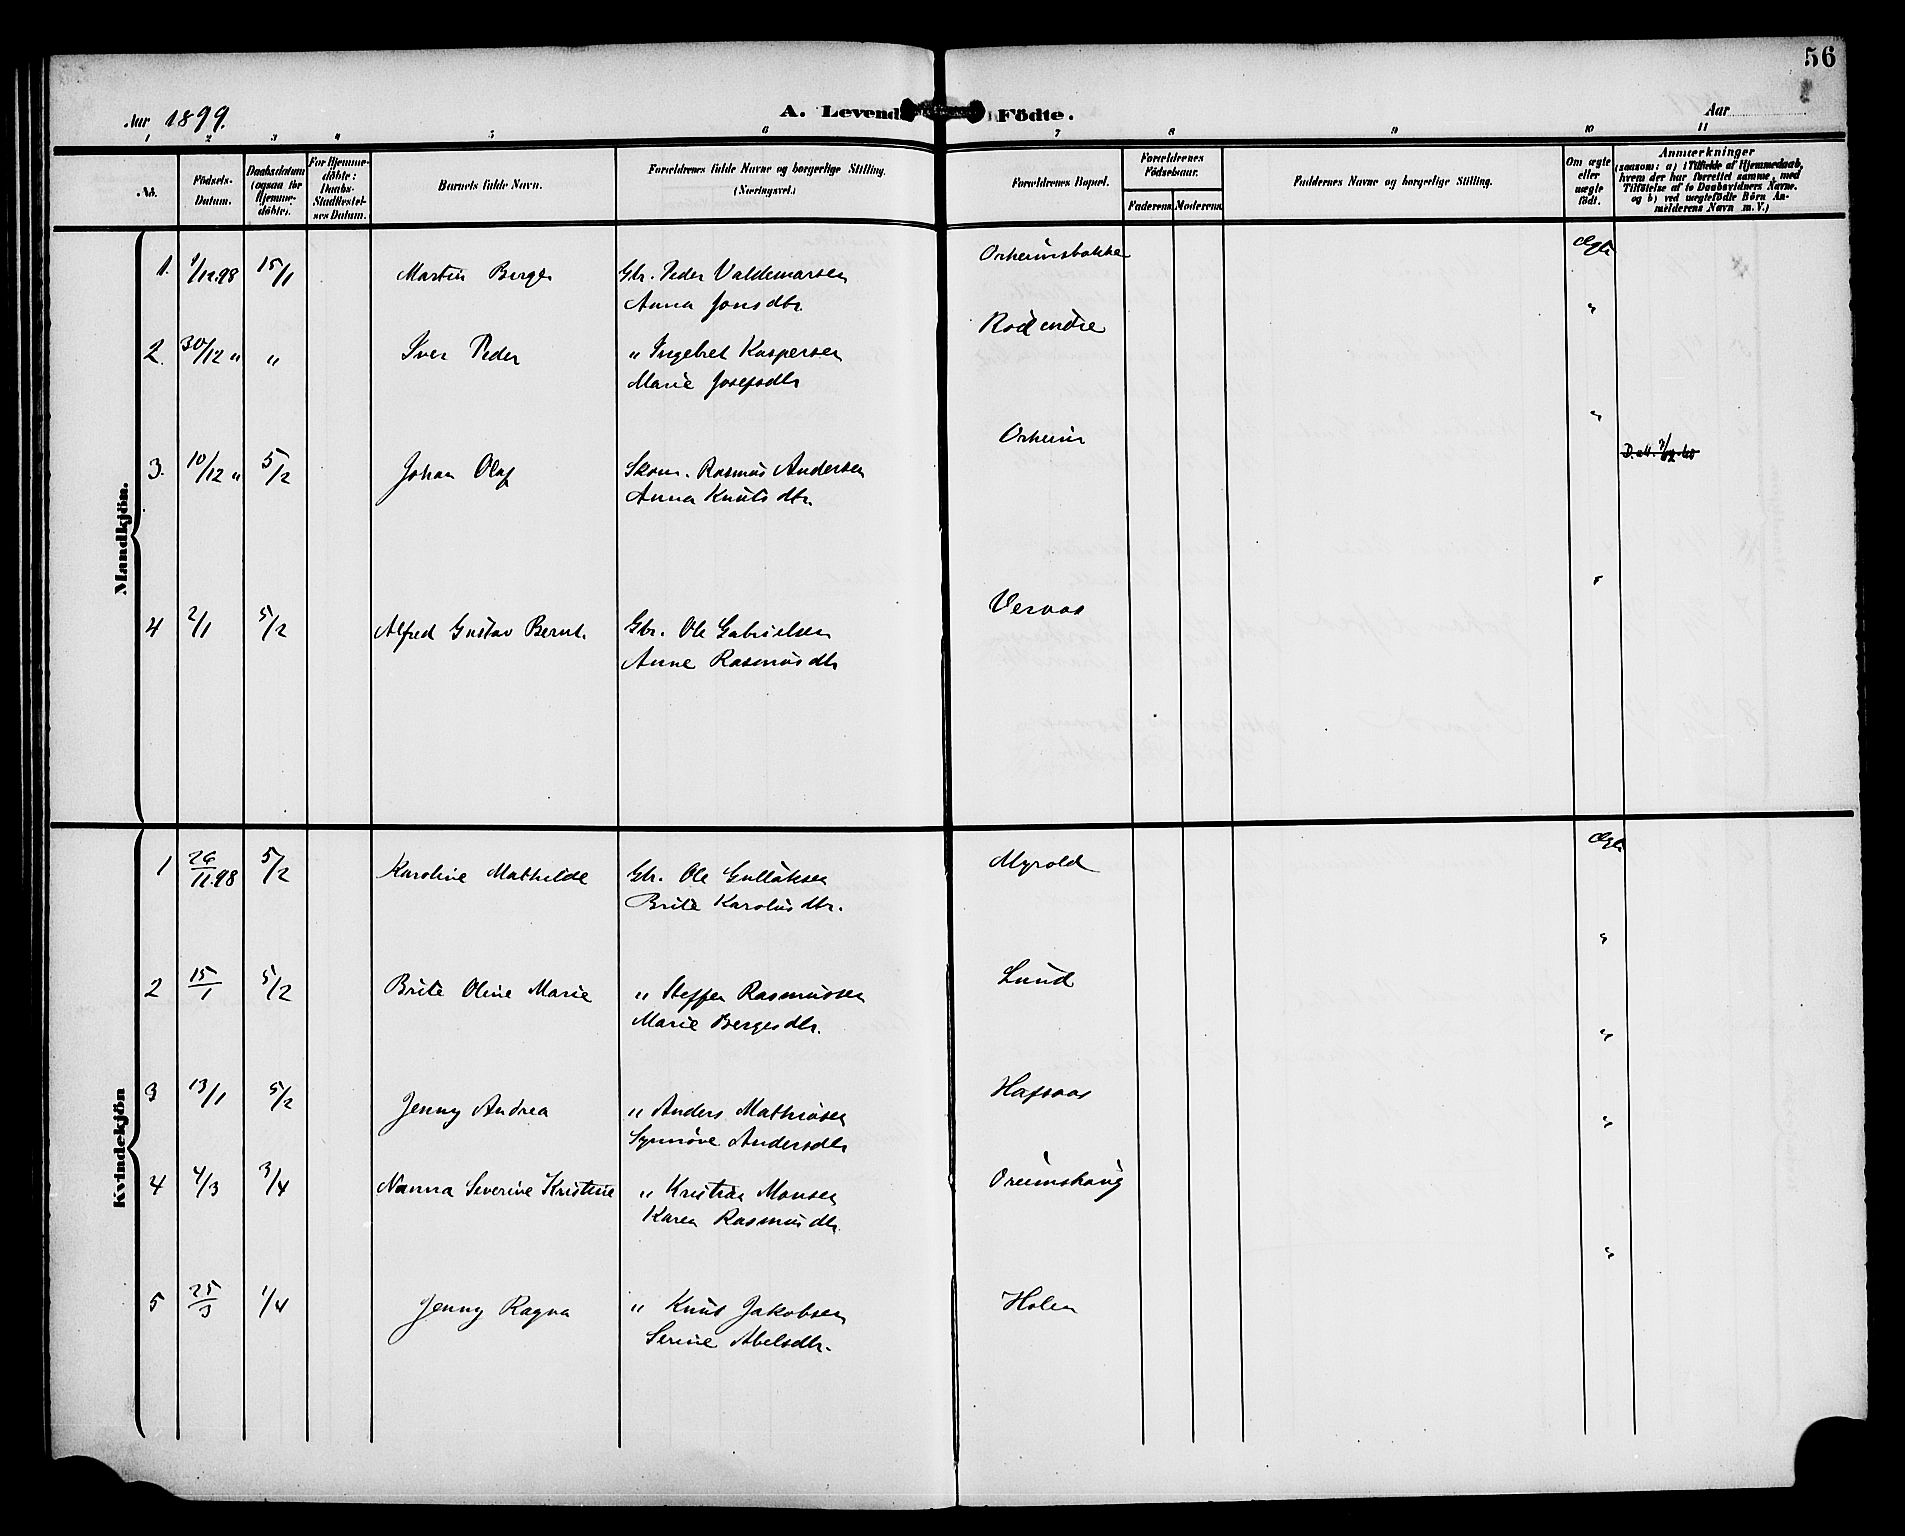 56
Aar 1899.
A. Levende Födte.
Aar
1 2 3 4 5 6 7 8 9 10 11
No.
Födsels-Datum.
Daabsdatum (ogsaa for Hjemme-döbte).
For Hjemme-döbte: Daabs-Stadfæstel-ses Datum.
Barnets fulde Navn.
Forældrenes fulde Navne og borgerlige Stilling. (Næringsvei.)
Forældrenes Bopæl.
Forældrenes Födselsaar.
Faderens Moderens
Faddernes Navne og borgerlige Stilling.
Om ægte eller uægte födt.
Anmærkninger
(saasom: a) i Tilfælde af Hjemmedaab, hvem der har forrettet samme, med Tilföielse af to Daabsvidners Navne. og b) ved uægtefödte Börn An-melderens Navn m. V.)
Mandkjön.
1. 1/12.98 15/1 Martin Berge Gbr. Peder Valdemarsen Orheimsbakke Ægte
Anna Jonsdtr.
2. 30/12 " " Iver Peder " Ingebret Kaspersen "
Marie Josefsdtr
3. 10/12 " 5/2 Johan Olaf Skom. Rasmus Andersen Orheim "
Anna Knutsdtr.
4 2/1 5/2 Alfred Gustav Bernt. Gbr. Ole Gabrielsen Vervaas "
Anne Rasmusdtr
Kvindekjön
1 26/11.98 5/2 Karoline Mathilde Gbr. Ole Gullaksen Myrold Ægte
Brite Karolusdtr.
2 15/1 5/2 Brite Oline Marie " Steffen Rasmussen Lund "
Marie Bergesdtr.
3 13/1 5/2 Jenny Andrea " Anders Mathiasen Hafsaas "
Synnøve Andersdtr
4 4/3 3/4 Nanna Severine Kristine " Kristian Monsen Oreimshaug "
Karen Rasmusdtr.
5 25/3 1/4 Jenny Ragna " Knut Jakobsen Holen "
Serine Abelsdtr.